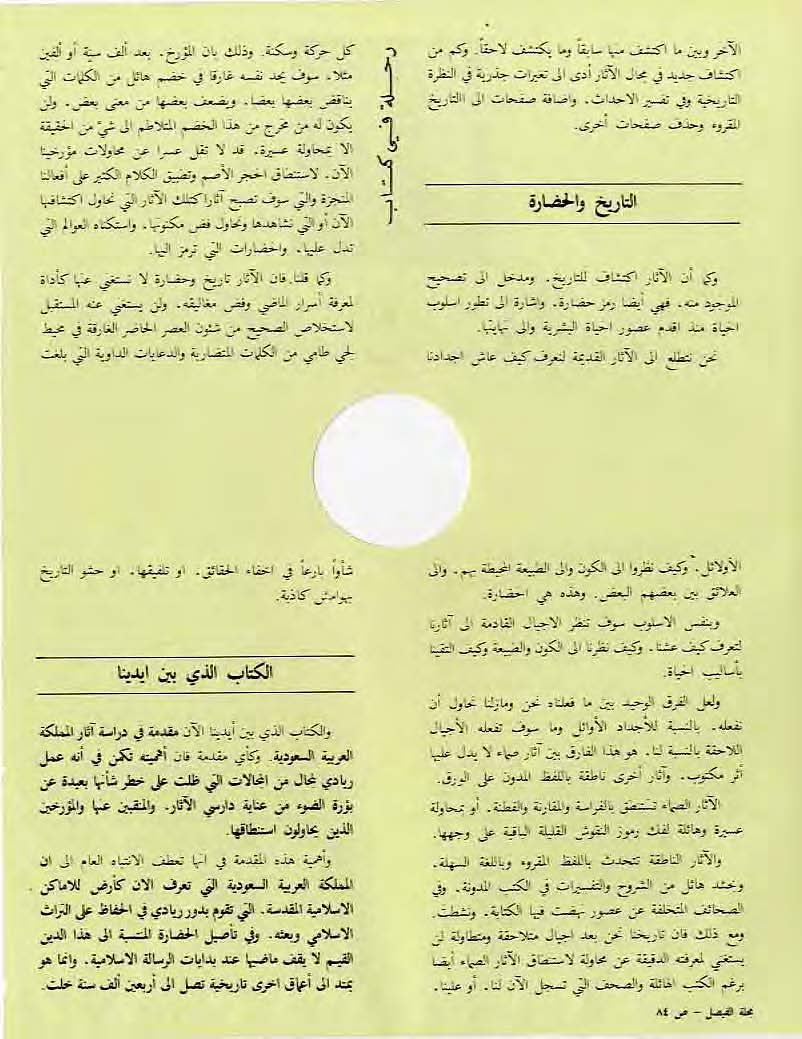 الآخر وبين ما اكتشف منها سابقا وما يكتشف لاحقا. وكم من
اكتشاف جديد في مجال الآثار أدى الى تغيرات جذرية في النظرة
التاريخية وفي تفسير الأحداث. واضاف صفحات الى التاريخ
المقروء وحذف صفحات أخرى.
التاريخ والحضارة
وكما أن الآثار اكتشاف للتاريخ. ومدخل الى تصحيح
الموجود منه. فهي أيضا رمز حضارة. واشارة الى تطور اسلوب
الحياة منذ اقدم عصور الحياة البشرية والى نهايتها.
نحن نتطلع الى الآثار القديمة لنعرف كيف عاش اجدادنا
الأوائل. وكيف نظروا الى الكون والى الطبيعة المحيطة بهم. والى
العلائق بين بعضهم البعض. وهذه هي الحضارة.
وبنفس الاسلوب سوف تنظر الاجيال القادمة الى آثارنا
لتعرف كيف عشنا. وكيف نظرنا الى الكون والطبيعة وكيف التقينا
بأساليب الحياة.
ولعل الفرق الوحيد بين ما فعلناه نحن ومازلنا نحاول أن
نفعله. بالنسبة للأجداد والأوائل وما سوف تفعله الأجيال
اللاحقة بالنسبة لنا. هو هذا الفارق بين آثار صماء لا يدل عليها
أثر مكتوب. وآثار أخرى ناطقة باللفظ المدون على الورق.
الآثار الصماء تستنطق بالفراسة والمقارنة والفطنة. أو بمحاولة
عسيرة وهائلة لفك رموز النقوش القليلة الباقية على وجهها.
والآثار الناطقة تتحدث باللفظ المقروء وباللغة السهلة.
وبحشد هائل من الشروح والتفسيرات في الكتب المدونة. وفي
الصحف المختلفة عن عصور نهضت فيها الكتابة. ونشطت.
ومع ذلك فان تاريخنا نحن بعد اجيال متلاحقة ومتطاولة لن
يستغني لمعرفة الدقيقة عن محاولة لاستنطاق الآثار الصماء أيضا
برغم الكتب الهائلة والصحف التي تسجل الآن لنا. أو علينا.
مجلة الفيصل – ص ٨٤
رحلة في كتاب
كل كبرى وسكنة. ولذلك بان المؤرخ. بعد ألف سنة أو ألفين
مثلا. سوف يجد نفسه غارقا في خضم هائل من الكلمات التي
يناقض بعضها بعضا. ويضعف بعضها من معنى بعض. ولن
يكون له من مخرج من هذا الخضم المتلاطم الى شيء من الحقيقة
الا بمحاولة عسيرة. قد لا تقل عسرا عن محاولات مؤرخينا
الآن. لاستنطاق الحجر الأصم وتضييق الكلام الكثير على أفعالنا
المنجزة والتي سوف تصبح آثارا كتلك الآثار التي نحاول اكتشافها
الآن أو التي نشاهدها ونحاول فض مكنونها. واستكناه العوالم التي
تدل عليها. والحضارات التي ترمز اليها.
وكما قلنا. فان الآثار تاريخ وحضارة لا يستغنى عنها كأداة
لمعرفة أسرار الماضي وفض مغاليقه. ولن يستغني عنه المستقبل
لاستخلاص الصحيح من شئون العصر الحاضر الغارقة في محيط
لجي طامي من الكلمات المتضاربة والدعايات والدوافع التي بلغت
شأواً بارعاً في اخفاء الحقائق. أو تلفيقها. أو حشو التاريخ
بهوامش كاذبة.
الكتاب الذي بين ايدينا
والكتاب الذي بين أيدينا الآن مقدمة في دراسة آثار المملكة
العربية السعودية. وكأي مقدمة فان أهميته تكمن في أنه عمل
ريادي لمجال من المجالات التي ظلت على خطر شأنها بعيدة عن
بؤرة الضوء من عناية دارسي الآثار. والمنقبين عنها والمؤرخين
الذين يحاولون استنطاقها.
وأهمية هذه المقدمة في أنها تلفت الانتباه الآن الى ان
المملكة العربية السعودية التي تعرف الان كأرض للأماكن
الاسلامية المقدسة. التي تقوم بدور ريادي في الحفاظ على التراث
الاسلامي وبعثه. وفي تأصيل الحضارة المنتسبة الى هذا الدين
القيم لا يقف ماضيها عند بدايات الرسالة الاسلامية. وإنما هو
يمتد الى أعماق اخرى تاريخية تصل الى أربعين ألف سنة خلت.